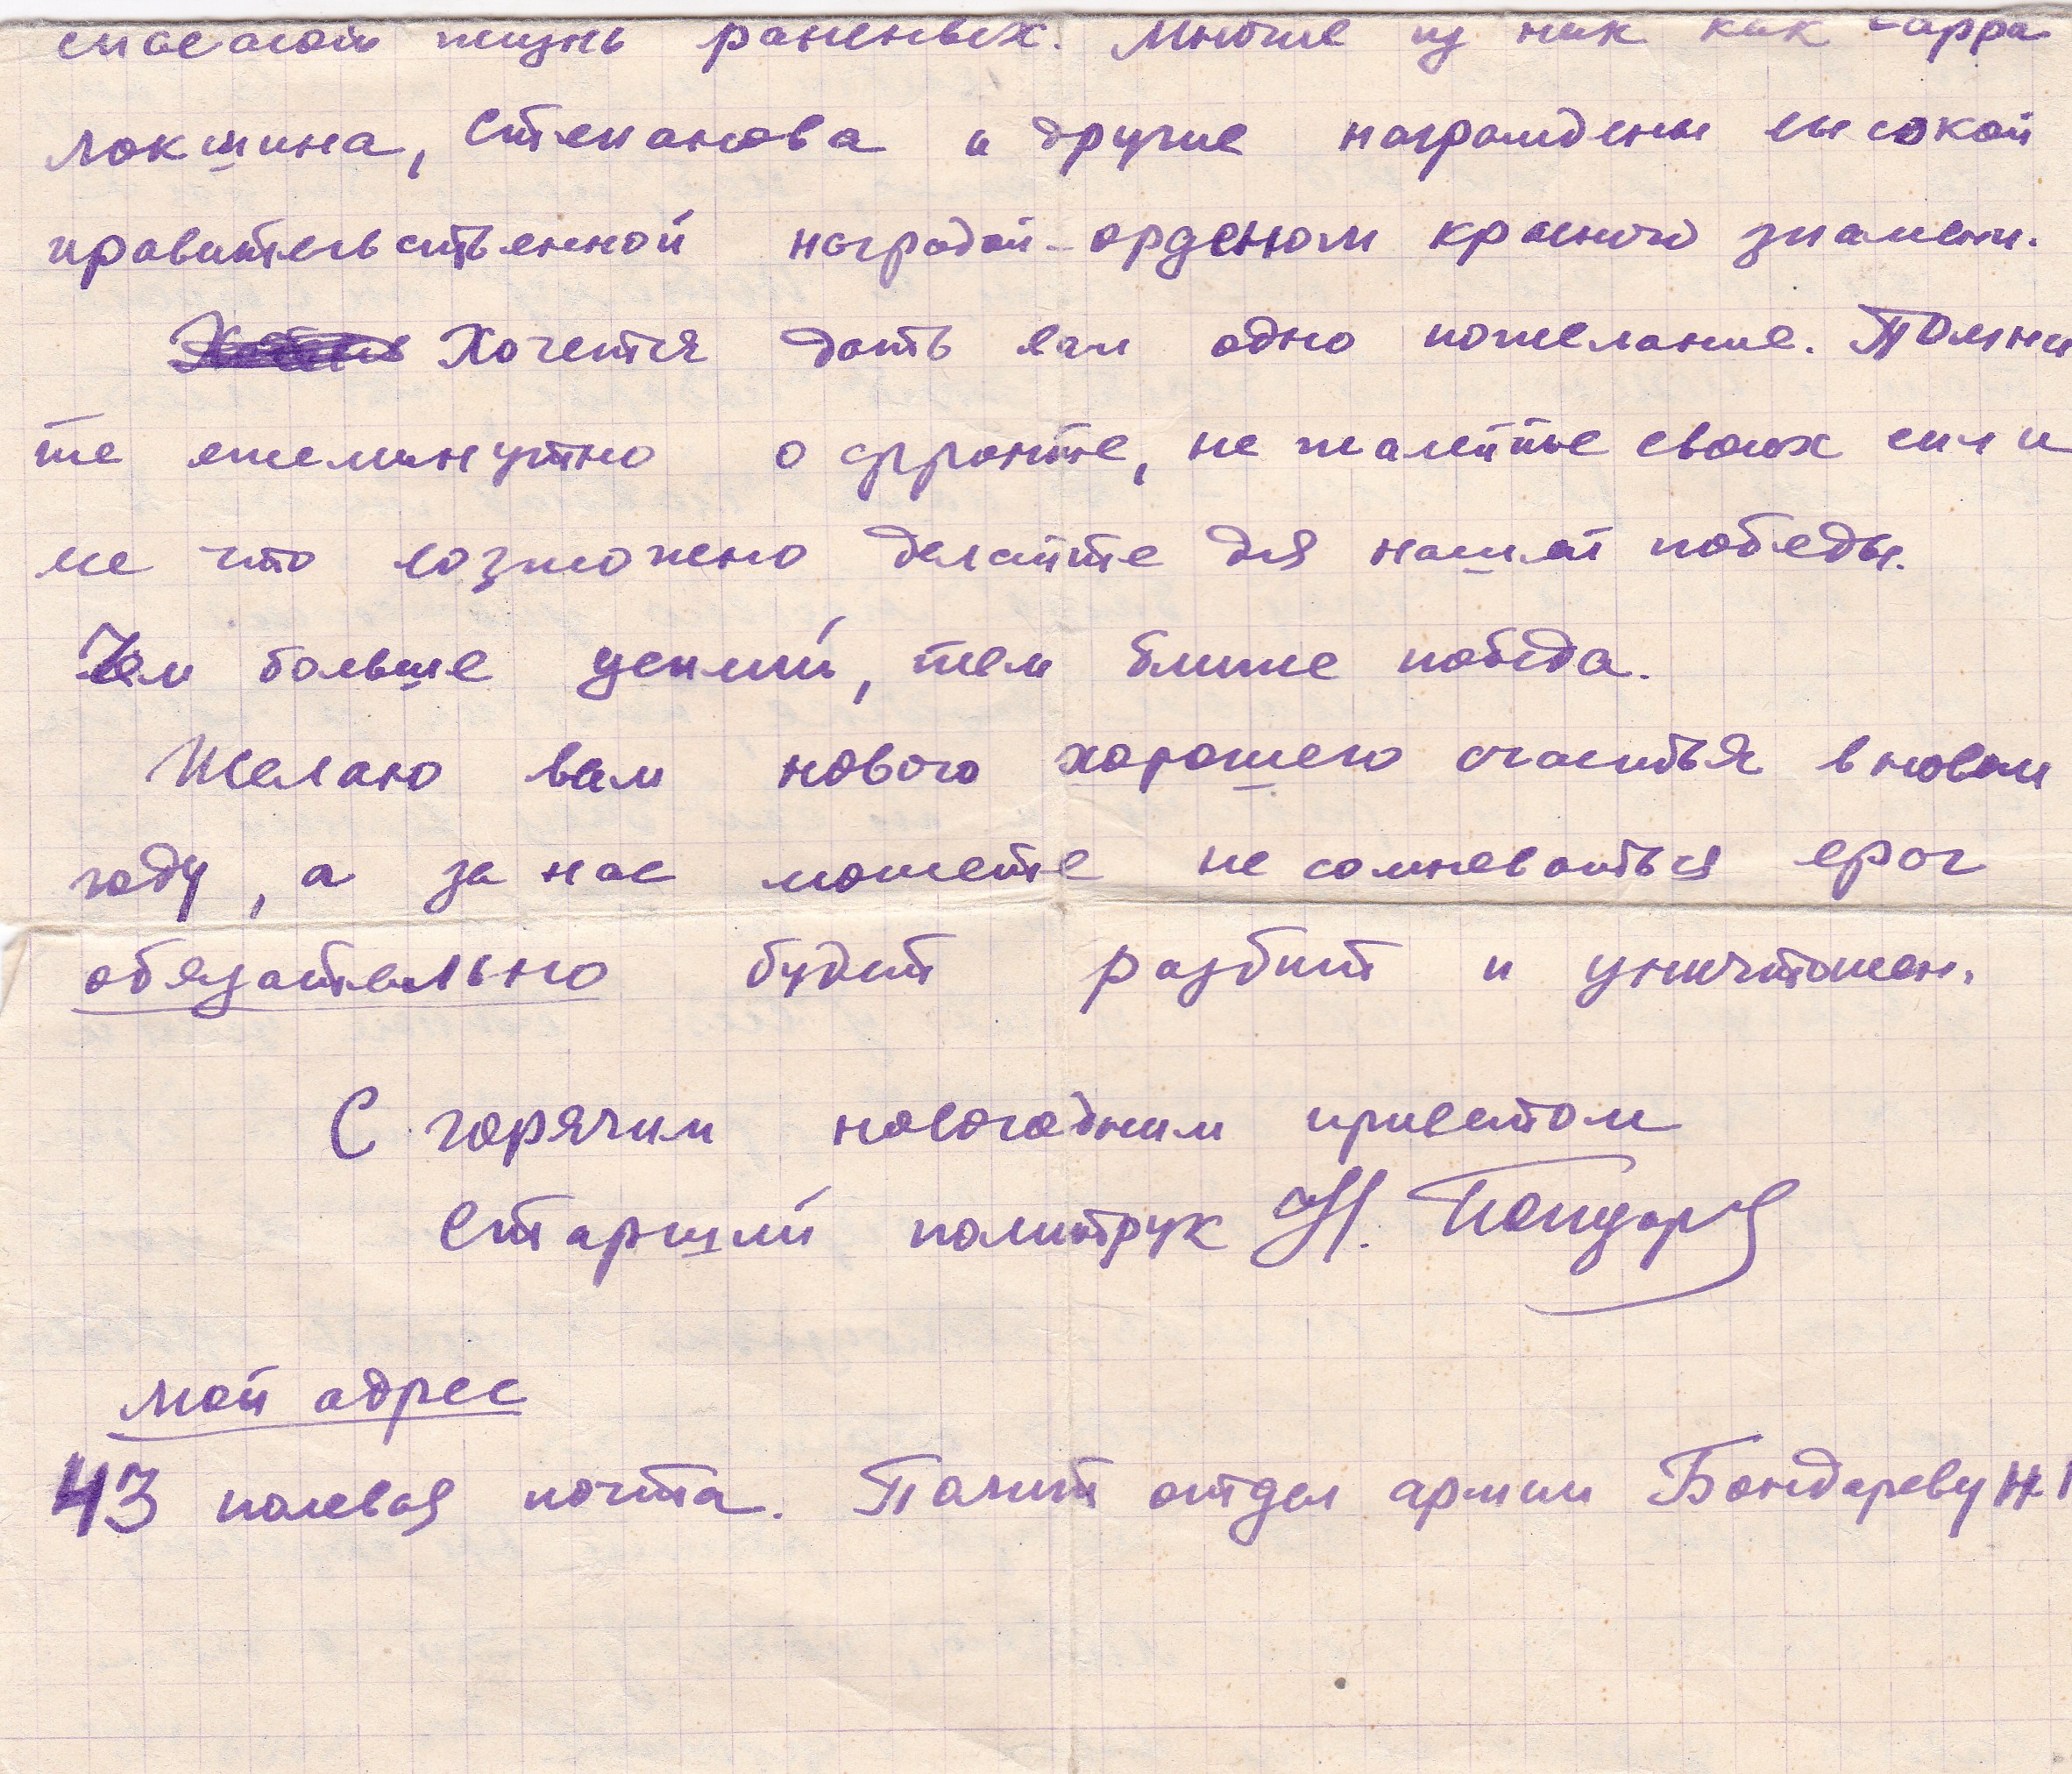 спасают жизнь раненых. Многие из них как Сарра
Локшина, Степанова и другие награждены высокой
правительственной наградой - орденом красного знамени.
Хочется дать вам одно пожелание. Помни
те ежеминутно о фронте, не жалейте своих сил и
все что возможно делайте для нашей победы.
Чем больше усилий, тем ближе победа.
Желаю вам нового хорошего счастья в новом
году, а за нас можете не сомневаться враг
обязательно будет разбит и уничтожен.
С горячим новогодним приветом
Старший политрук Н. Бондарев
мой адрес
43 полевая почта. Полит отдел армии Бондареву Н